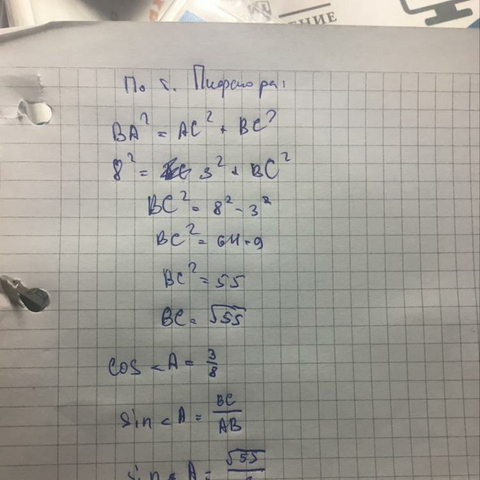 ЕНИЕ
По т. Пифагора:
BA² = AC² + BC²
8² = 3² + BC²
BC² = 8² - 3²
BC² = 64 - 9
BC² = 55
BC = √55
cos <A = 3/8
sin <A = BC/AB
sin <A = √55